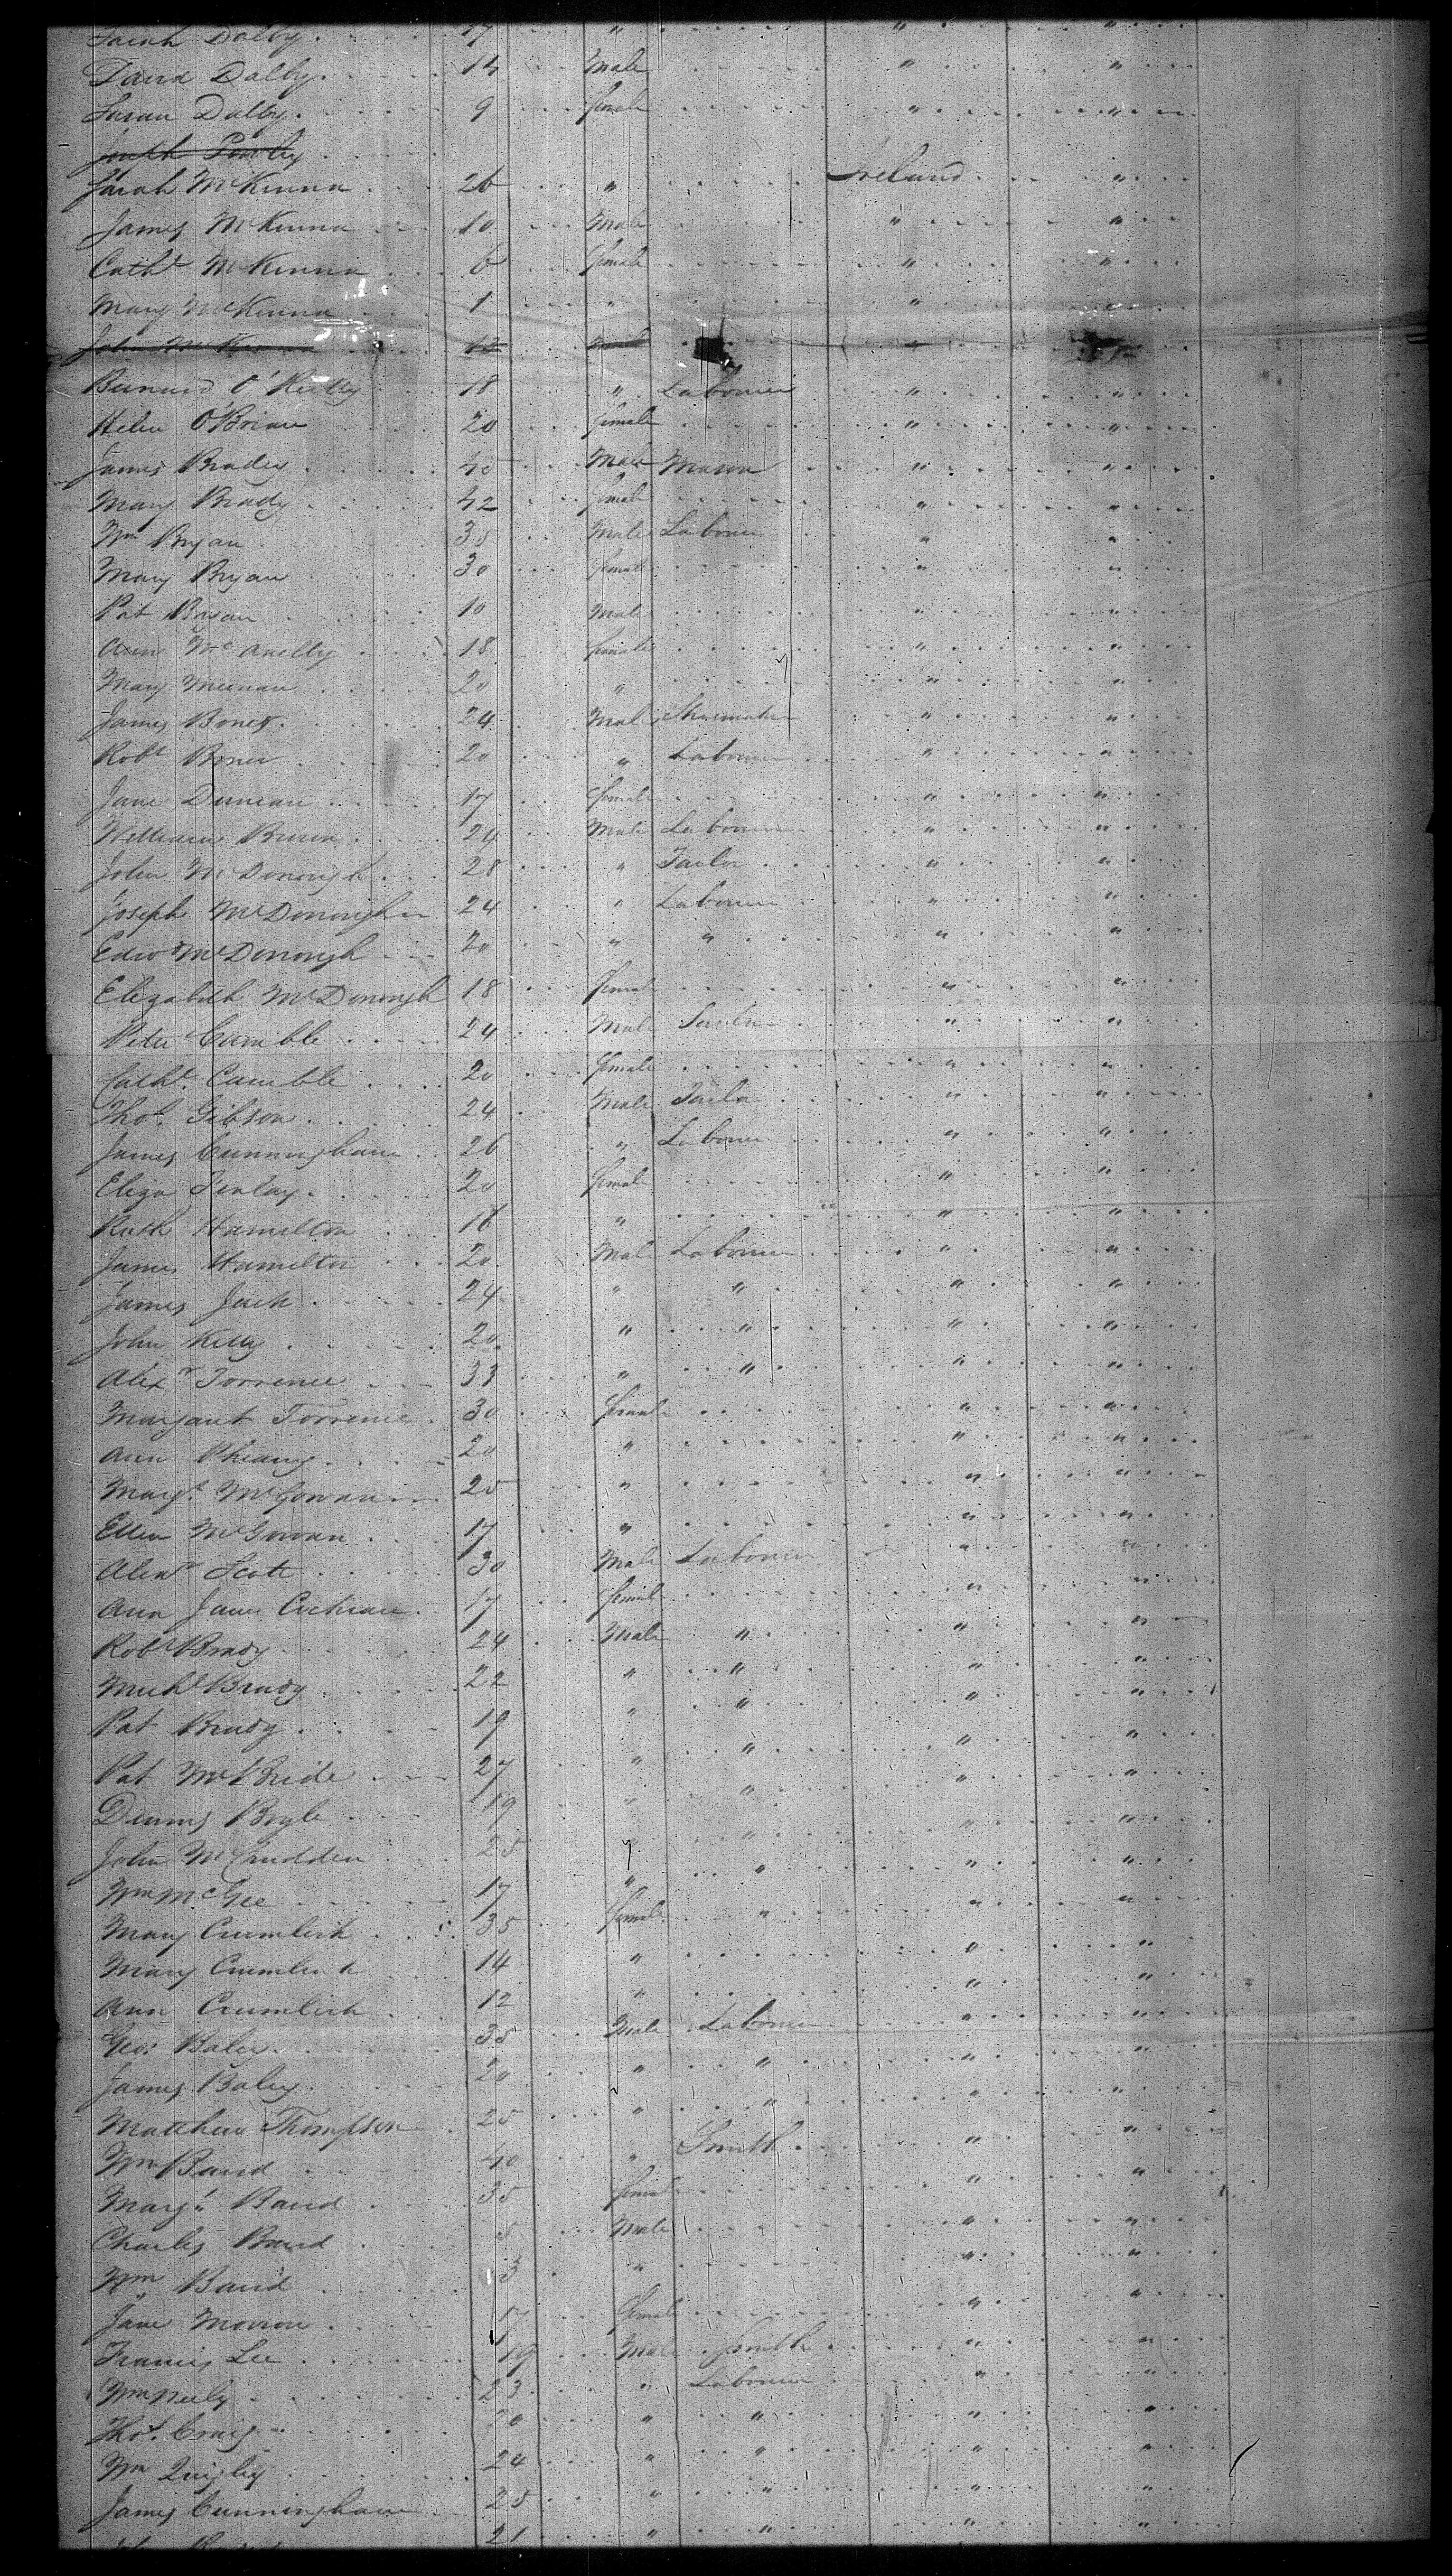 Sarah Dalby 17 " " "
David Dalby 14 Male " "
Susan Dalby 9 female " "
Joseph
Sarah McKenna 26 " Ireland "
James McKenna 10 Male " "
Cathe McKenna 6 female " "
Mary McKenna 1 " " "
John McKenna
Bernard O'Reilly 18 " Labourer " "
Helen O'Brian 20 female " "
James Brady 40 Male Mason " "
Mary Brady 42 female " "
Wm Bryan 35 Male Labourer " "
Mary Bryan 30 female " "
Pat Bryan 10 Male " "
Ann McAnelly 18 female " "
Mary Meenan 20 " " "
James Boner 24 Male Shoemaker " "
Robt Boner 20 " Labourer " "
Jane Duncan 17 female " "
William Brown 24 Male Labourer " "
John McDonough 28 " Tailor " "
Joseph McDonough 24 " Labourer " "
Edwd McDonough 20 " " " "
Elizabeth McDonough 18 female " "
Peter Camble 24 Male " "
Cathe Camble 20 female " "
Thos. Gibson 24 Male Tailor " "
James Cunningham 26 " Labourer " "
Eliza Finlay 20 female " "
Ruth Hamilton 16 " " "
James Hamilton 20 Male Labourer " "
James Jack 24 " " " "
John Kelly 20 " " " "
Alexr Torrence 33 " " " "
Margaret Torrence 30 female " "
Ann 20 " " "
Margt. McGowan 25 " " "
Ellen McGowan 17 " " "
Alexr Scott 30 Male Labourer " "
Ann Jane Cochran 17 female " "
Robt Brady 24 Male " " "
Michl Brady 22 " " " "
Pat Brady 19 " " " "
Pat McBride 27 " " " "
Dennis Boyle 19 " " " "
John McCrudden 25 " " " "
Wm McGee 17 " " " "
Mary Crumlish 35 female " " "
Mary Crumlish 14 " " "
Ann Crumlish 12 " " "
Geo. Baley 35 Male Labourer " "
James Baley 20 " " " "
Matthew Thompson 25 " " " "
Wm Baird 40 " Smith " "
Margt. Baird 35 female " "
Charles Baird 5 Male " "
Wm Baird 3 " " "
Jane Morrow 17 female " "
Francis Lee 19 Male Smith " "
Wm Neely 23 " Labourer " "
Thos. Craig 20 " " " "
Wm Quigley 24 " " " "
James Cunningham 25 " " " "
John 21 " " " "